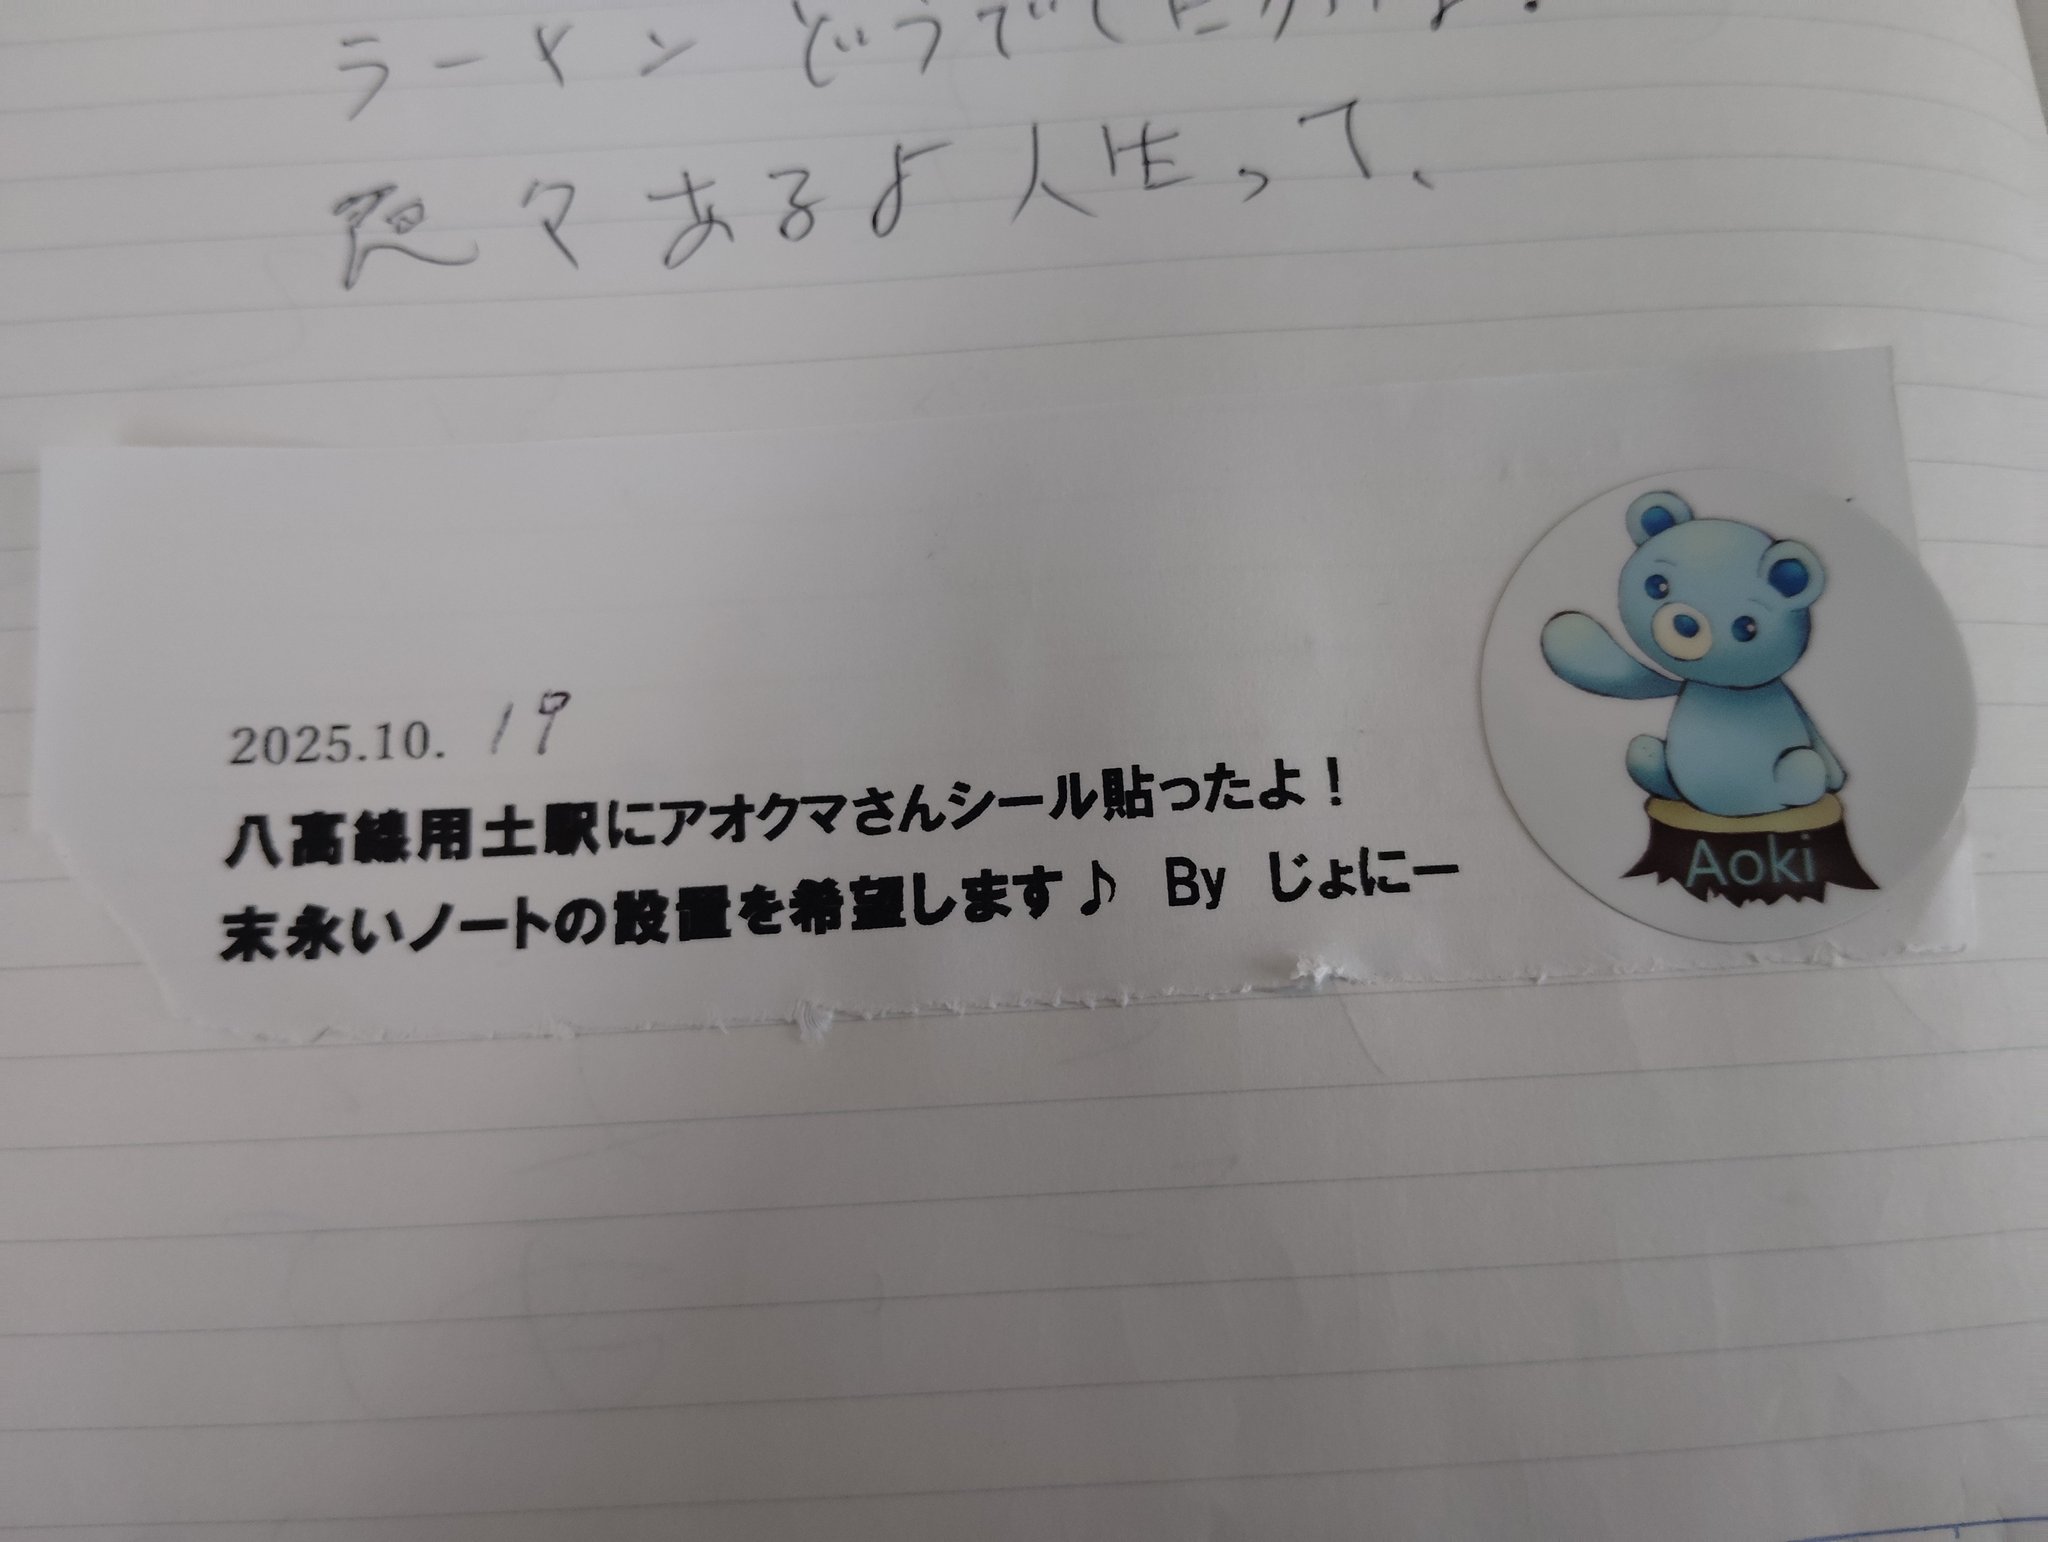 ラーメン どうでしたか
色々あるよ人生って、
2025.10.19
八高線用土駅にアオクマさんシール貼ったよ！
末永いノートの設置を希望します♪ By じょにー
Aoki